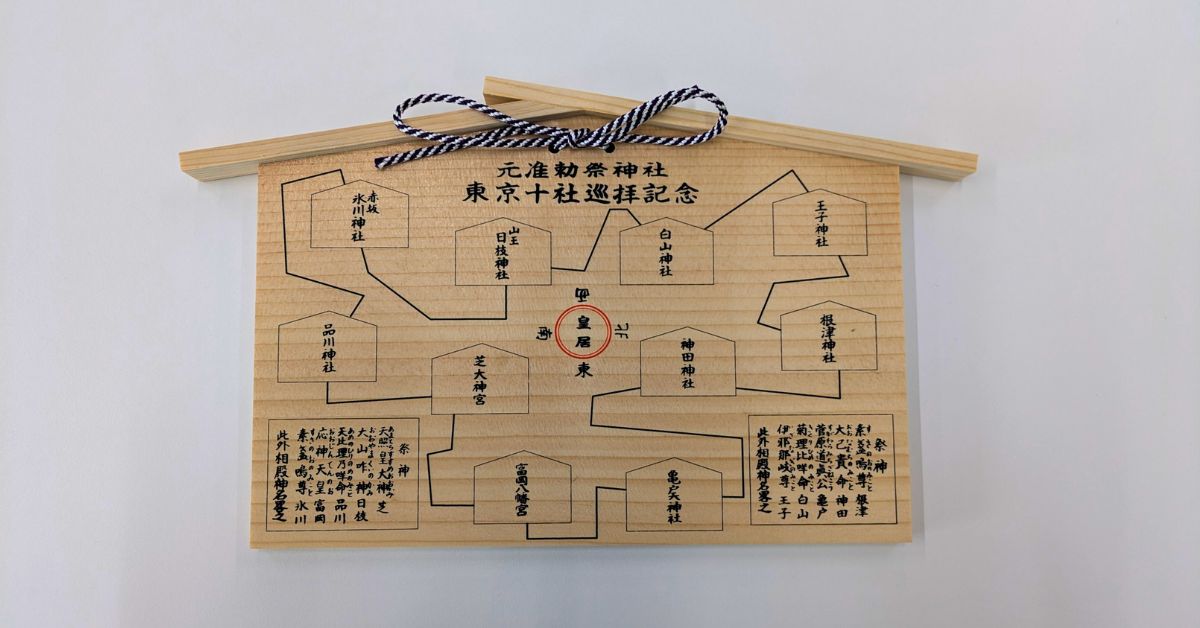 元准勅祭神社
東京十社巡拝記念
赤坂
氷川神社
山王
日枝神社
白山神社
王子神社
品川神社
芝大神宮
西
南
皇居
北
東
神田神社
根津神社
富岡八幡宮
亀戸天神社
祭神
天照皇大神 芝
大山咋神 日枝
天比理乃咩命 品川
応神天皇 富岡
素盞嗚尊 氷川
此外相殿神名畧之
祭神
素盞嗚尊 根津
大己貴命 神田
菅原道真公 亀戸
菊理比咩命 白山
伊邪那岐尊 王子
此外相殿神名畧之